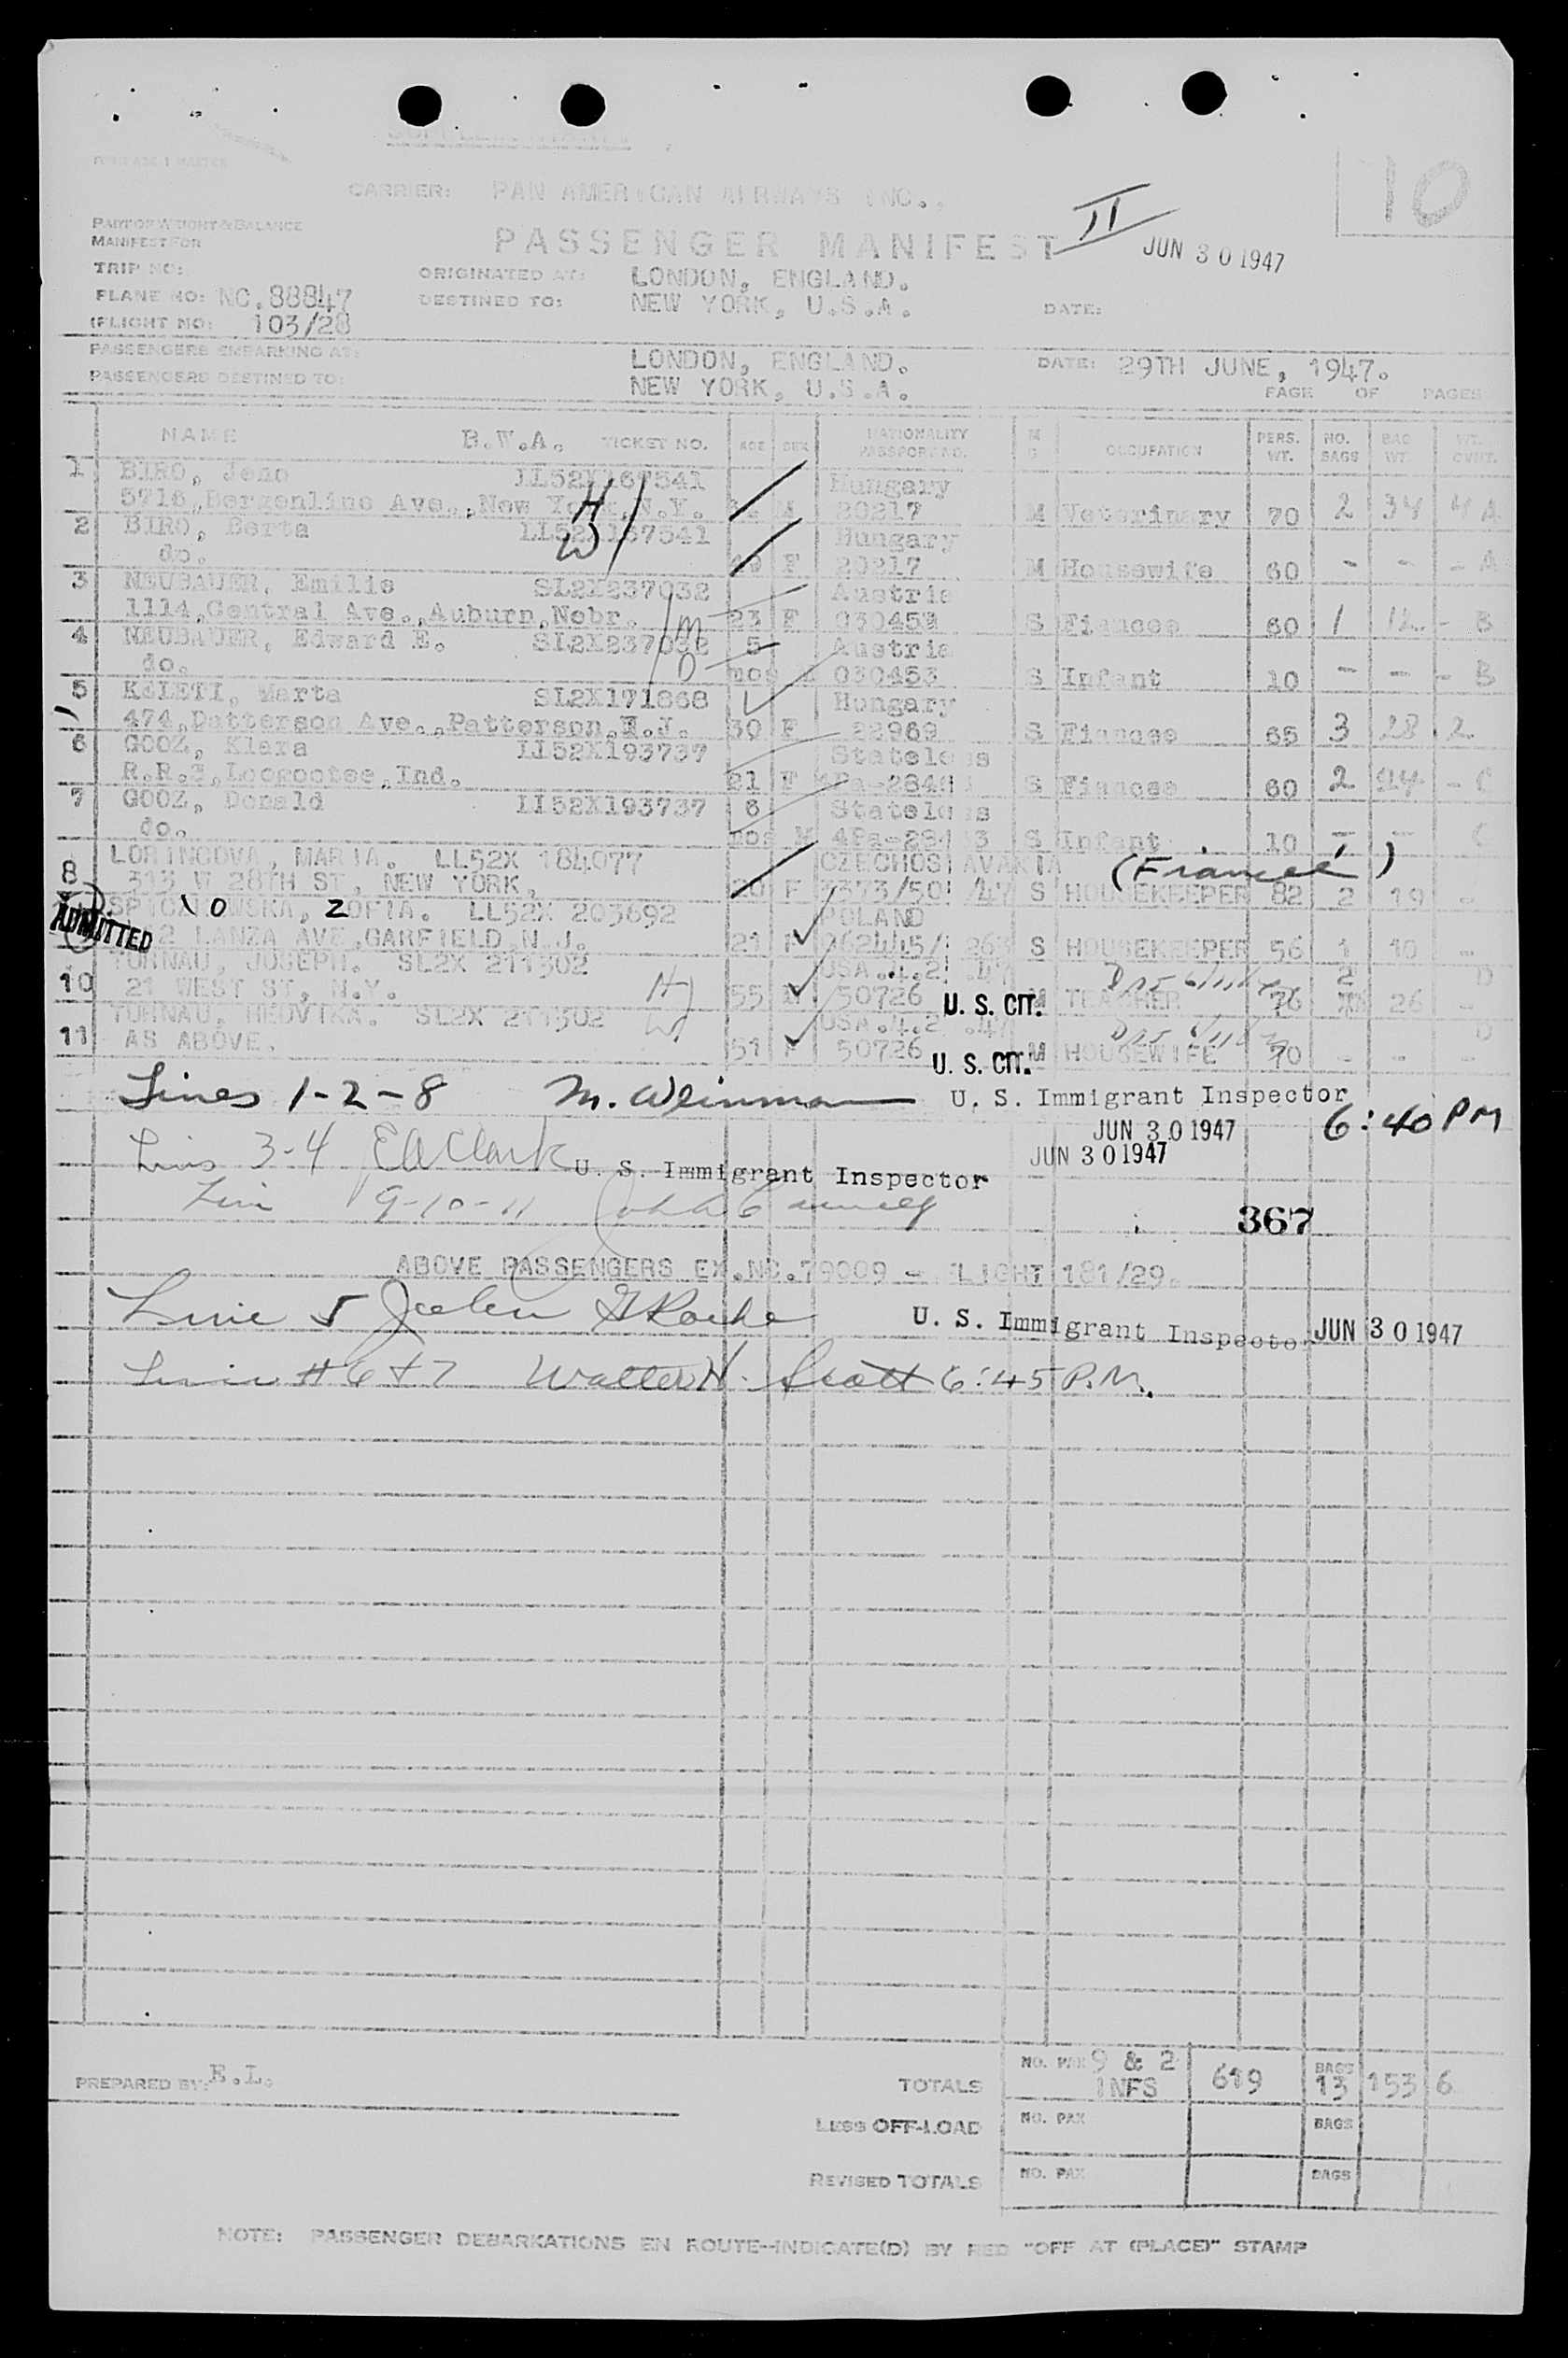 CARRIER: PAN AMERICAN AIRWAYS INC.,
10
PART OF WEIGHT & BALANCE
MANIFEST FOR
PASSENGER MANIFEST
II
JUN 30 1947
TRIP NO:
ORIGINATED AT: LONDON, ENGLAND.
PLANE NO: NC.88847
DESTINED TO: NEW YORK, U.S.A.
DATE:
(FLIGHT NO: 103/28
PASSENGERS EMBARKING AT: LONDON, ENGLAND. DATE: 29TH JUNE, 1947.
PASSENGERS DESTINED TO: NEW YORK, U.S.A. PAGE OF PAGES
NAME B.W.A. TICKET NO. AGE SEX NATIONALITY PASSPORT NO. M S OCCUPATION PERS. WT. NO. BAGS BAG WT.
1 BIRO, Jeno LL52X167541 Hungary
5716,Bergenline Ave.,New York,N.Y. 20217 M Veterinary 70 2 34 4 A
H
2 BIRO, Berta LL52X167541 Hungary
W
do. F 20217 M Housewife 60 - - - A
3 NEUBAUER, Emilie SL2X237032 Austria
1114,Central Ave.,Auburn,Nebr. M 23 F 030453 S Fiancee 60 1 12 - B
4 NEUBAUER, Edward E. SL2X237032 5 Austria
do. D mos M 030453 S Infant 10 - - - B
5 KELETI, Marta SL2X171868 Hungary
474,Patterson Ave.,Patterson,N.J. 30 F 22969 S Fiancee 65 3 28 2
6 GOOZ, Klara LL52X193737 Stateless
R.R.3,Loogootee,Ind. 21 F S Fiancee 60 2 24 - C
7 GOOZ, Donald LL52X193737 6 Stateless
do. mos M S Infant 10 - - C
8 LORINCOVA, MARIA. LL52X 184077 CZECHOSLAVAKIA (Fiancee)
313 W 28TH ST, NEW YORK, 20 F S HOUSEKEEPER 82 2 19 -
ZOFIA. LL52X 203692 POLAND
ADMITTED
LANZA AVE,GARFIELD,N.J. 21 F S HOUSEKEEPER 56 1 10 -
10 TURNAU, JOSEPH. SL2X 211302 2 D
21 WEST ST, N.Y. H 55 M 50726 U. S. CIT. M TEACHER 76 26 -
TURNAU, HEDVIKA. SL2X 211302 D
11 AS ABOVE. W 51 F 50726 U. S. CIT. M HOUSEWIFE 70 - - -
Lines 1-2-8 M. Weinman U. S. Immigrant Inspector
JUN 30 1947 6:40 PM
Lines 3-4 EA Clark U. S. Immigrant Inspector JUN 30 1947
9-10-11 John
367
ABOVE PASSENGERS EX.NC.79009 - FLIGHT 181/29.
Line 5 U. S. Immigrant Inspector JUN 30 1947
# 6 & 7 Walter H. Scott 6:45 P.M.
PREPARED BY: E.L.
TOTALS NO. PAX 9 & 2 INFS 619 BAGS 13 153 6
LESS OFF-LOAD NO. PAX BAGS
REVISED TOTALS NO. PAX BAGS
NOTE: PASSENGER DEBARKATIONS EN ROUTE--INDICATE(D) BY RED "OFF AT (PLACE)" STAMP